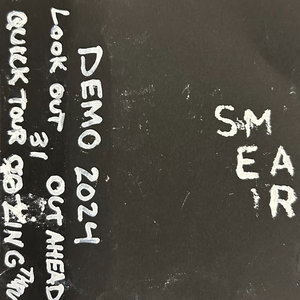 DEMO 2024
LOOK OUT OUT AHEAD
31
QUICK TOUR
SM
EA
R